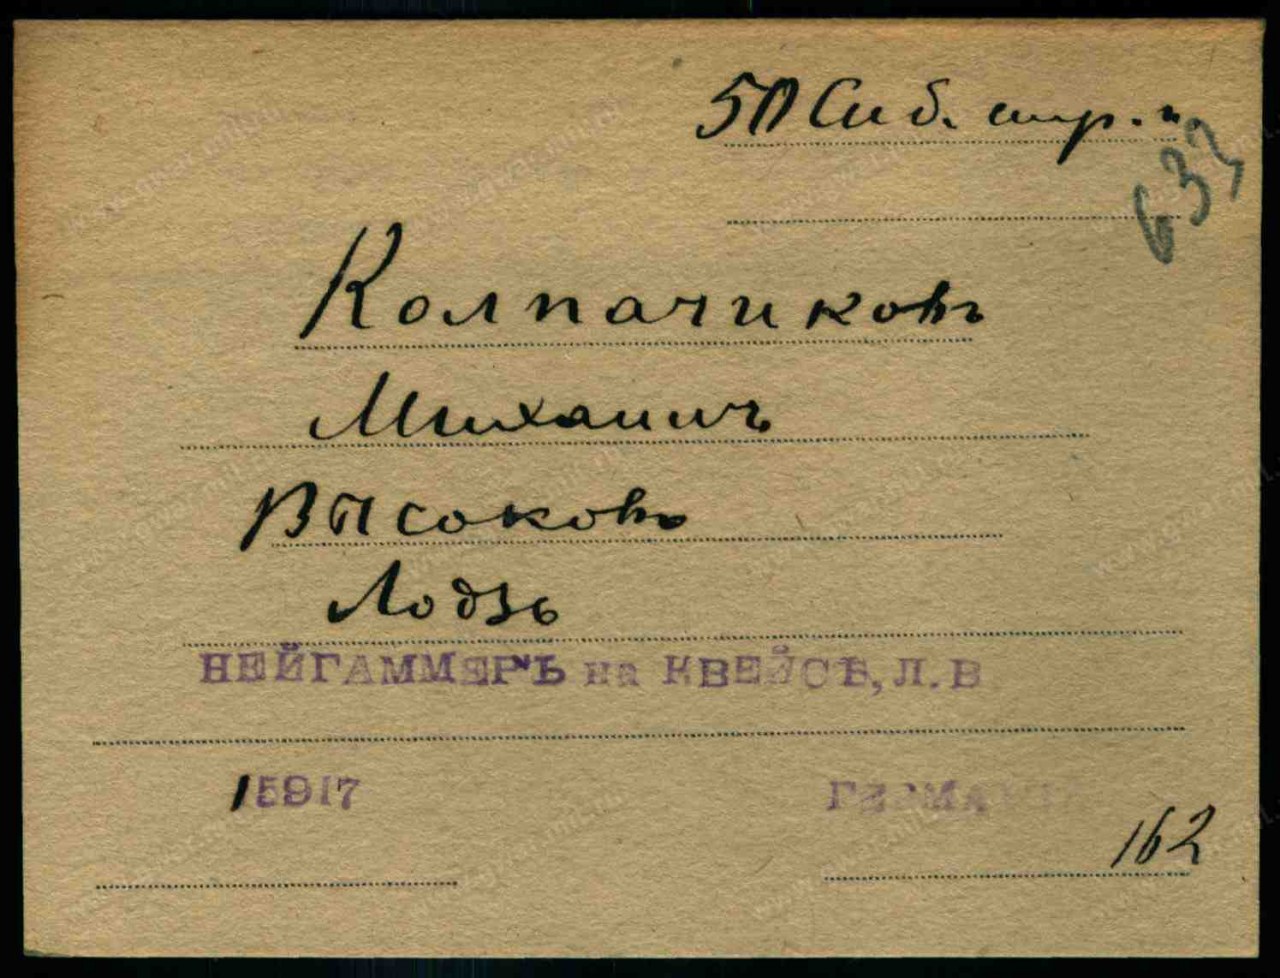 50 Сиб. стр. п
633
Колпачиковъ
Михаилъ
Высоковъ
Лодзь
НЕЙГАММЕРЪ на КВЕЙСѢ, Л. В
15917
ГЕРМА
162